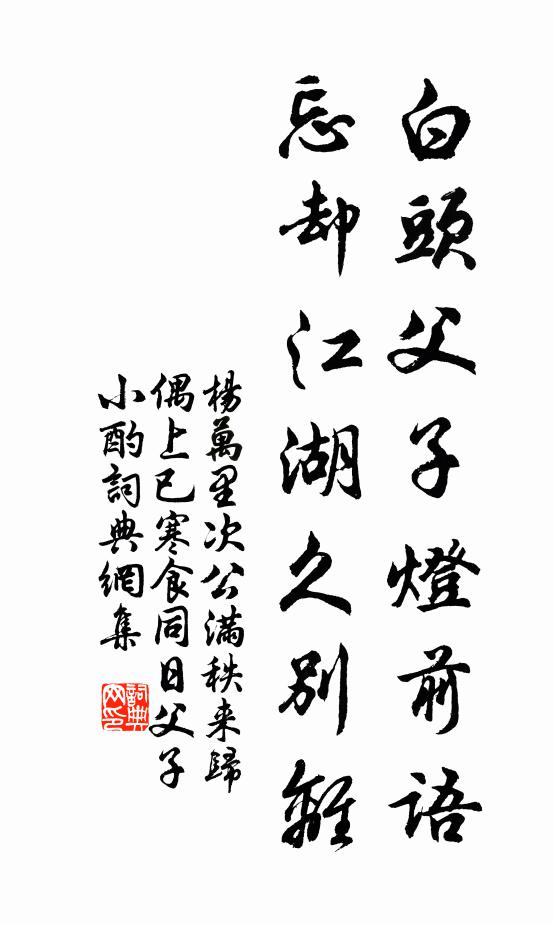 白頭父子燈前語
忘却江湖久别離
楊萬里次公满秩来歸
偶上巳寒食同日父子
小酌詞典網集
詞典
网印